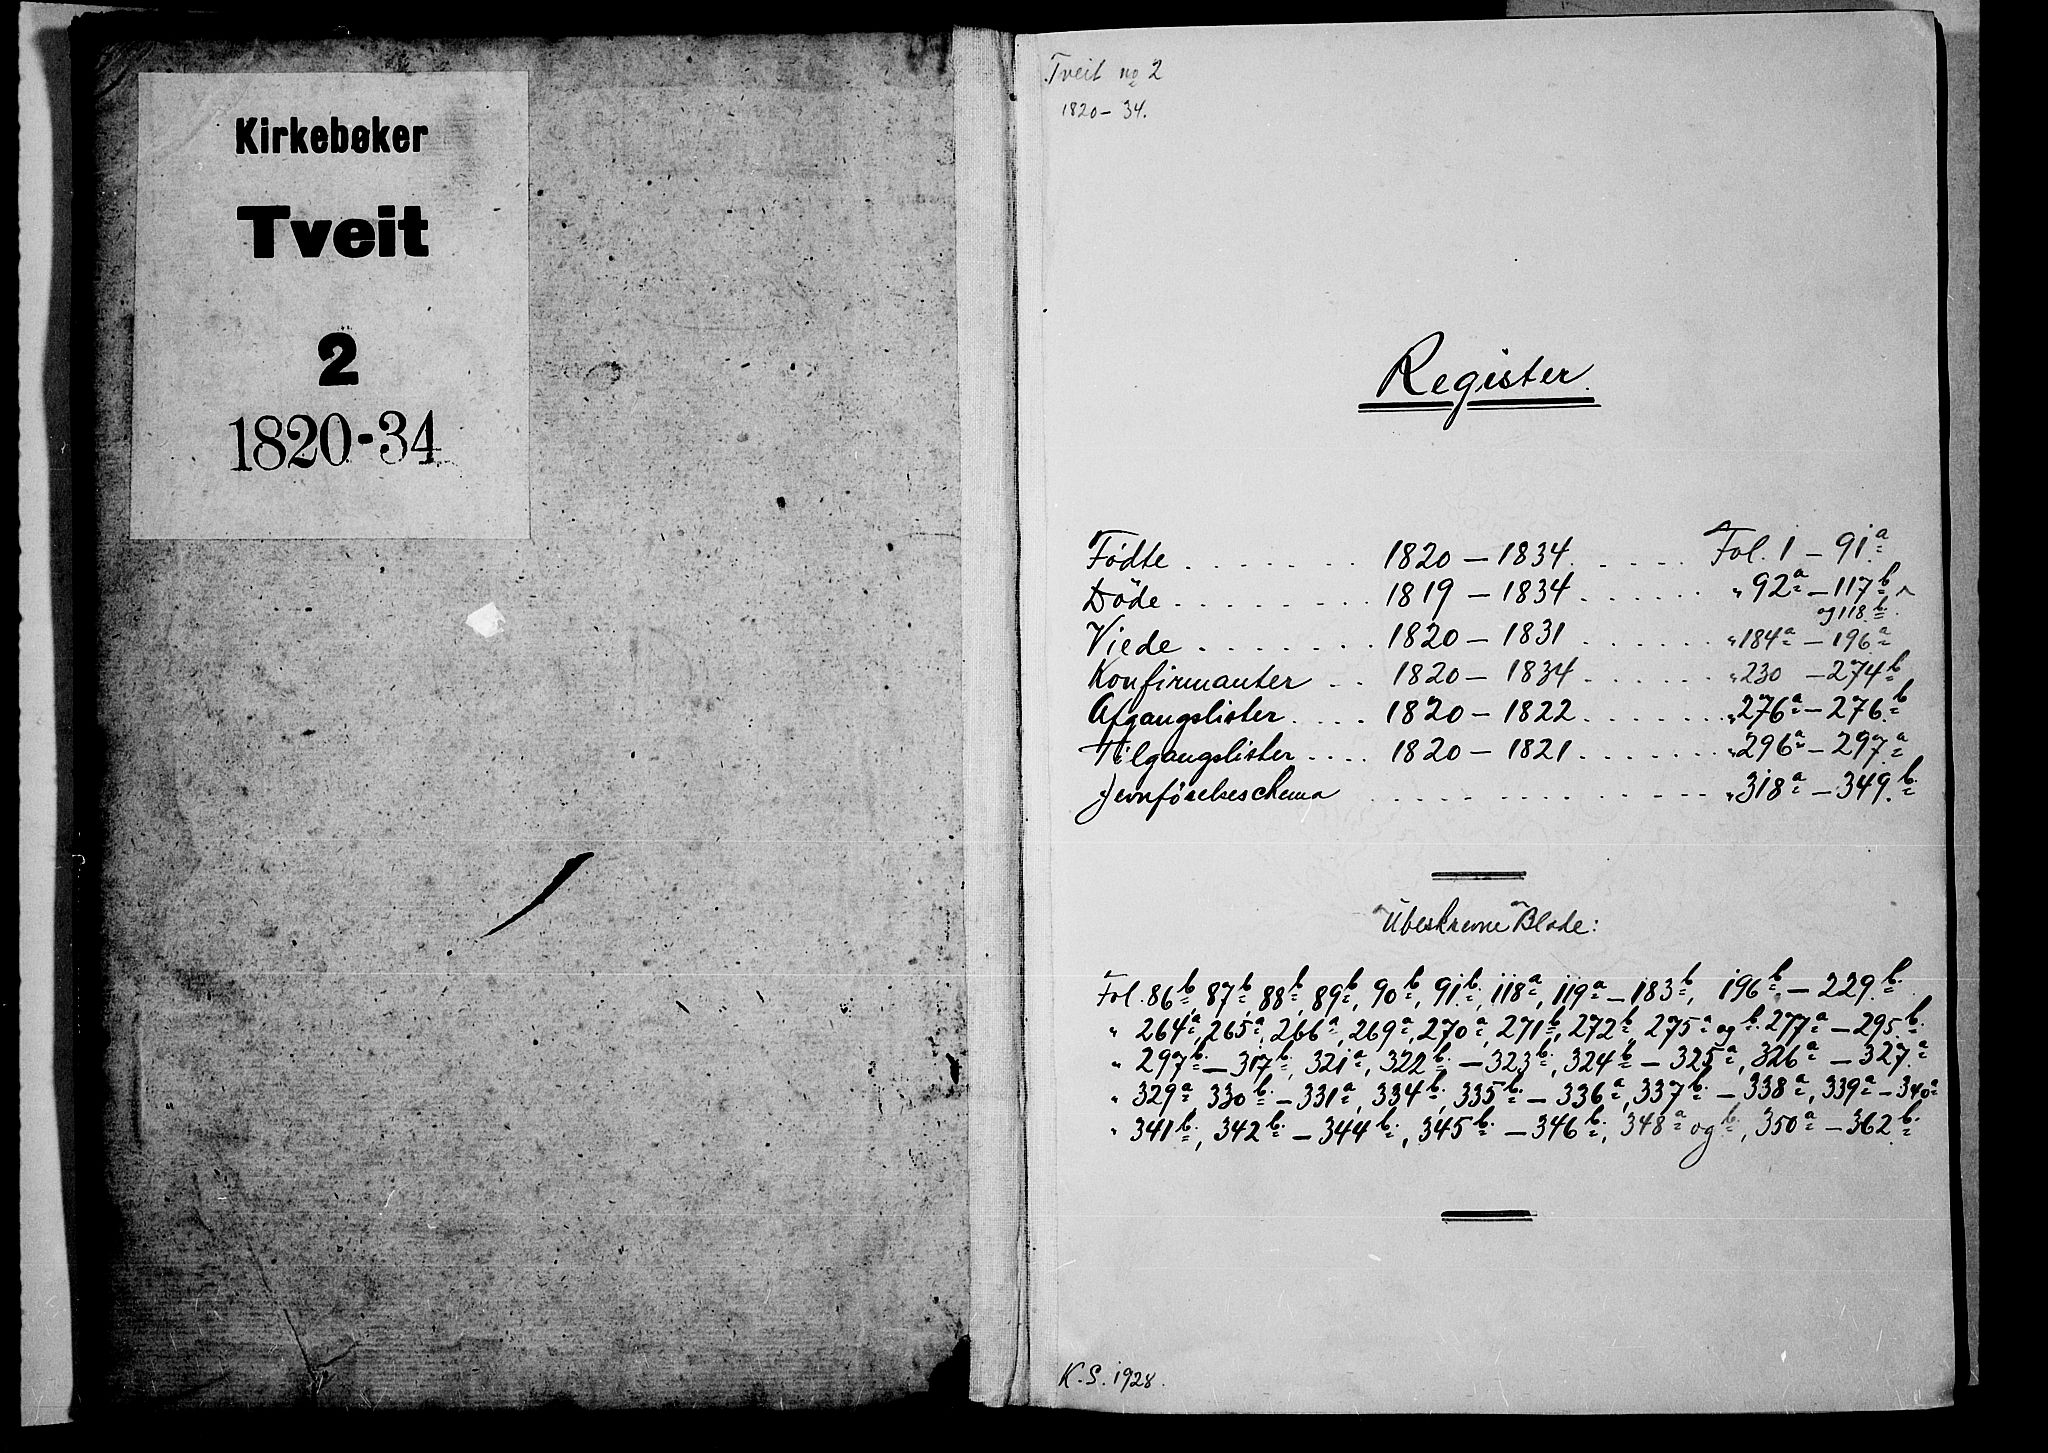 Kirkebøker
Tveit
2
1820-34
Tveit no 2
1820-34.
Register.
Fødte . . . . . . . 1820 - 1834. . . . . . Fol. 1 - 91a
Döde . . . . . . . 1819 - 1834 . . . . . . " 92a - 117b
og 118b.
Viede . . . . . . . 1820 - 1831 . . . . . . " 184a - 196a
Konfirmanter . . 1820 - 1834 . . . . . . " 230 - 274b
Afgangslister . . . . 1820 - 1822 . . . . . . " 276a - 276b
Tilgangslister . . . . 1820 - 1821 . . . . . . " 296a - 297a
Jevnförelseschema . . . . . . . . . . . . . " 318a - 349b.
Ubeskrevne Blade:
Fol. 86b, 87b, 88b, 89b, 90b, 91b, 118a, 119a - 183b, 196b - 229b.
" 264a, 265a, 266a, 269a, 270a, 271b, 272b, 275a og b. 277a - 295b.
" 297b. - 317b, 321a, 322b. - 323b, 324b - 325a, 326a - 327a.
" 329a, 330b. - 331a, 334b, 335b. - 336a, 337b. - 338a, 339a - 340a
" 341b, 342b. - 344b., 345b. - 346b, 348a og b, 350a - 362b.
K.S. 1928.